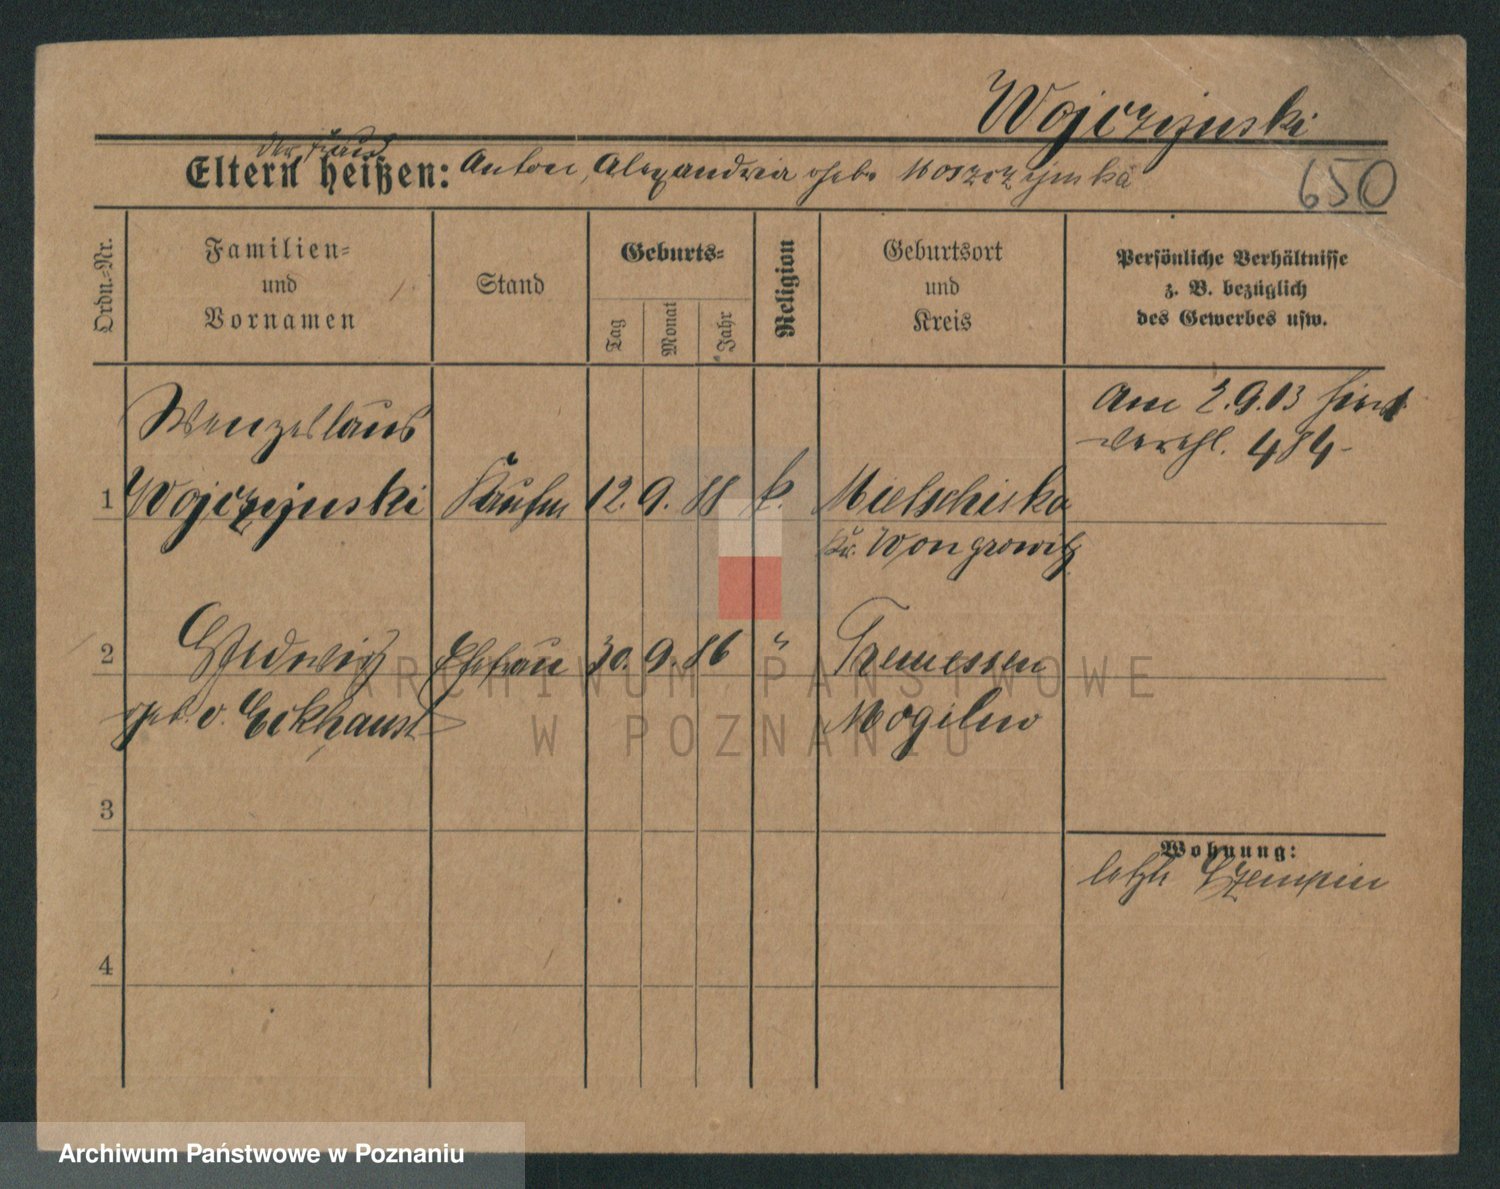 Wojczynski
der Frau
Eltern heißen: Anton, Alexandria gebr. Moszczynska
650
Ordn.-Nr.
Familien-
und
Vornamen
Stand
Geburts-
Tag
Monat
Jahr
Religion
Geburtsort
und
Kreis
Persönliche Verhältnisse
z. B. bezüglich
des Gewerbes usw.
Wenzeslaus
1 Wojczynski Kaufm 12. 9. 88 k. Mielschisko
Kr. Wongrowitz
Am 2.9.13 hier
verehl. 484-
2 Hedwig Ehefrau 30. 9. 86 " Tremessen
geb. v. Eckhaust Mogilno
3
4
Wohnung:
letzte Czempin
ARCHIWUM PAŃSTWOWE
W POZNANIU
Archiwum Państwowe w Poznaniu